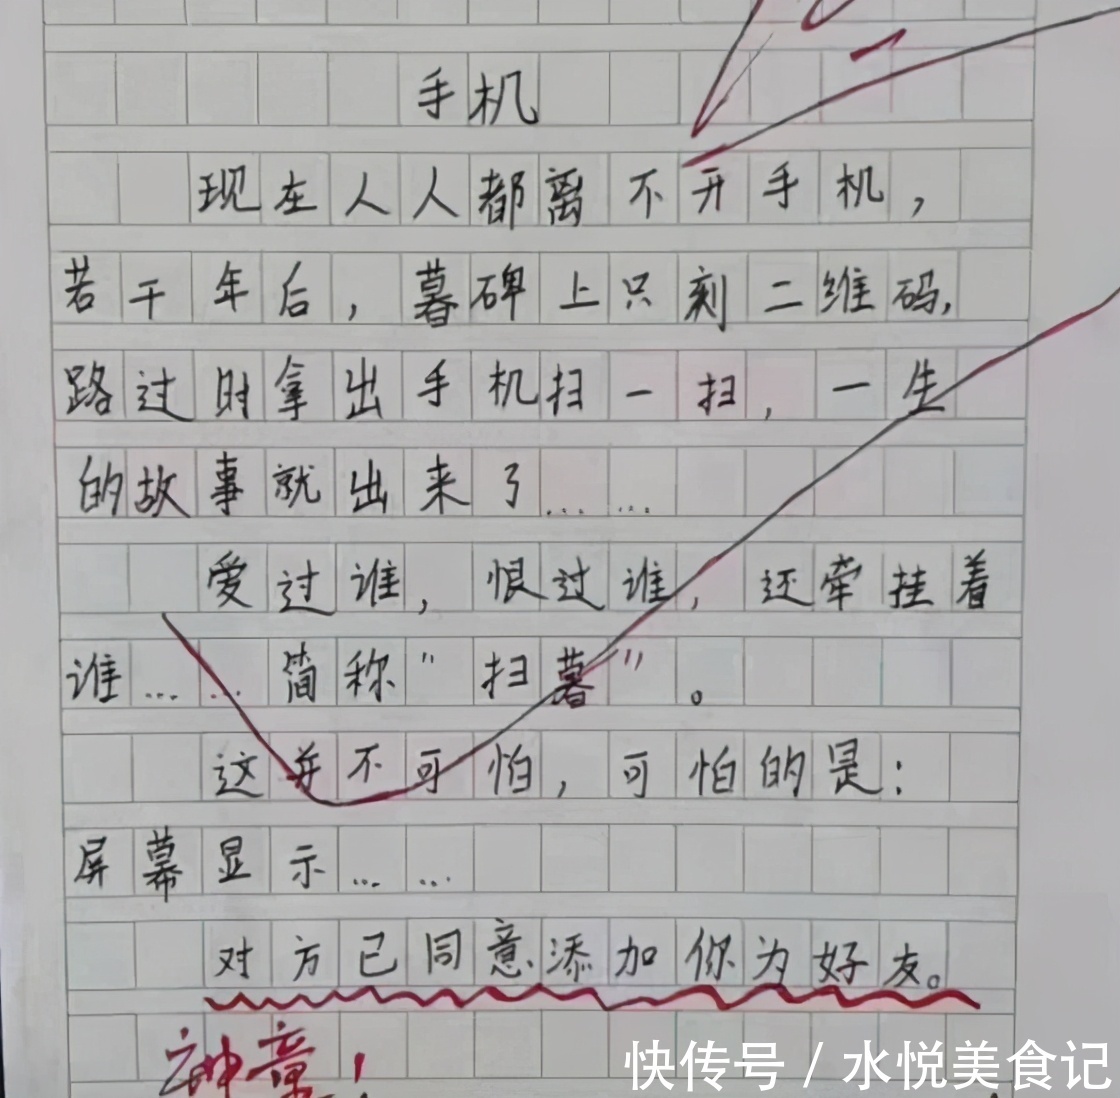 手机
现在人人都离不开手机，
若干年后，暮碑上只刻二维码，
路过时拿出手机扫一扫，一生
的故事就出来了……
爱过谁，恨过谁，还牵挂着
谁……简称“扫暮”。
这并不可怕，可怕的是：
屏幕显示……
对方已同意添加你为好友。
神章！
快传号 / 水悦美食记